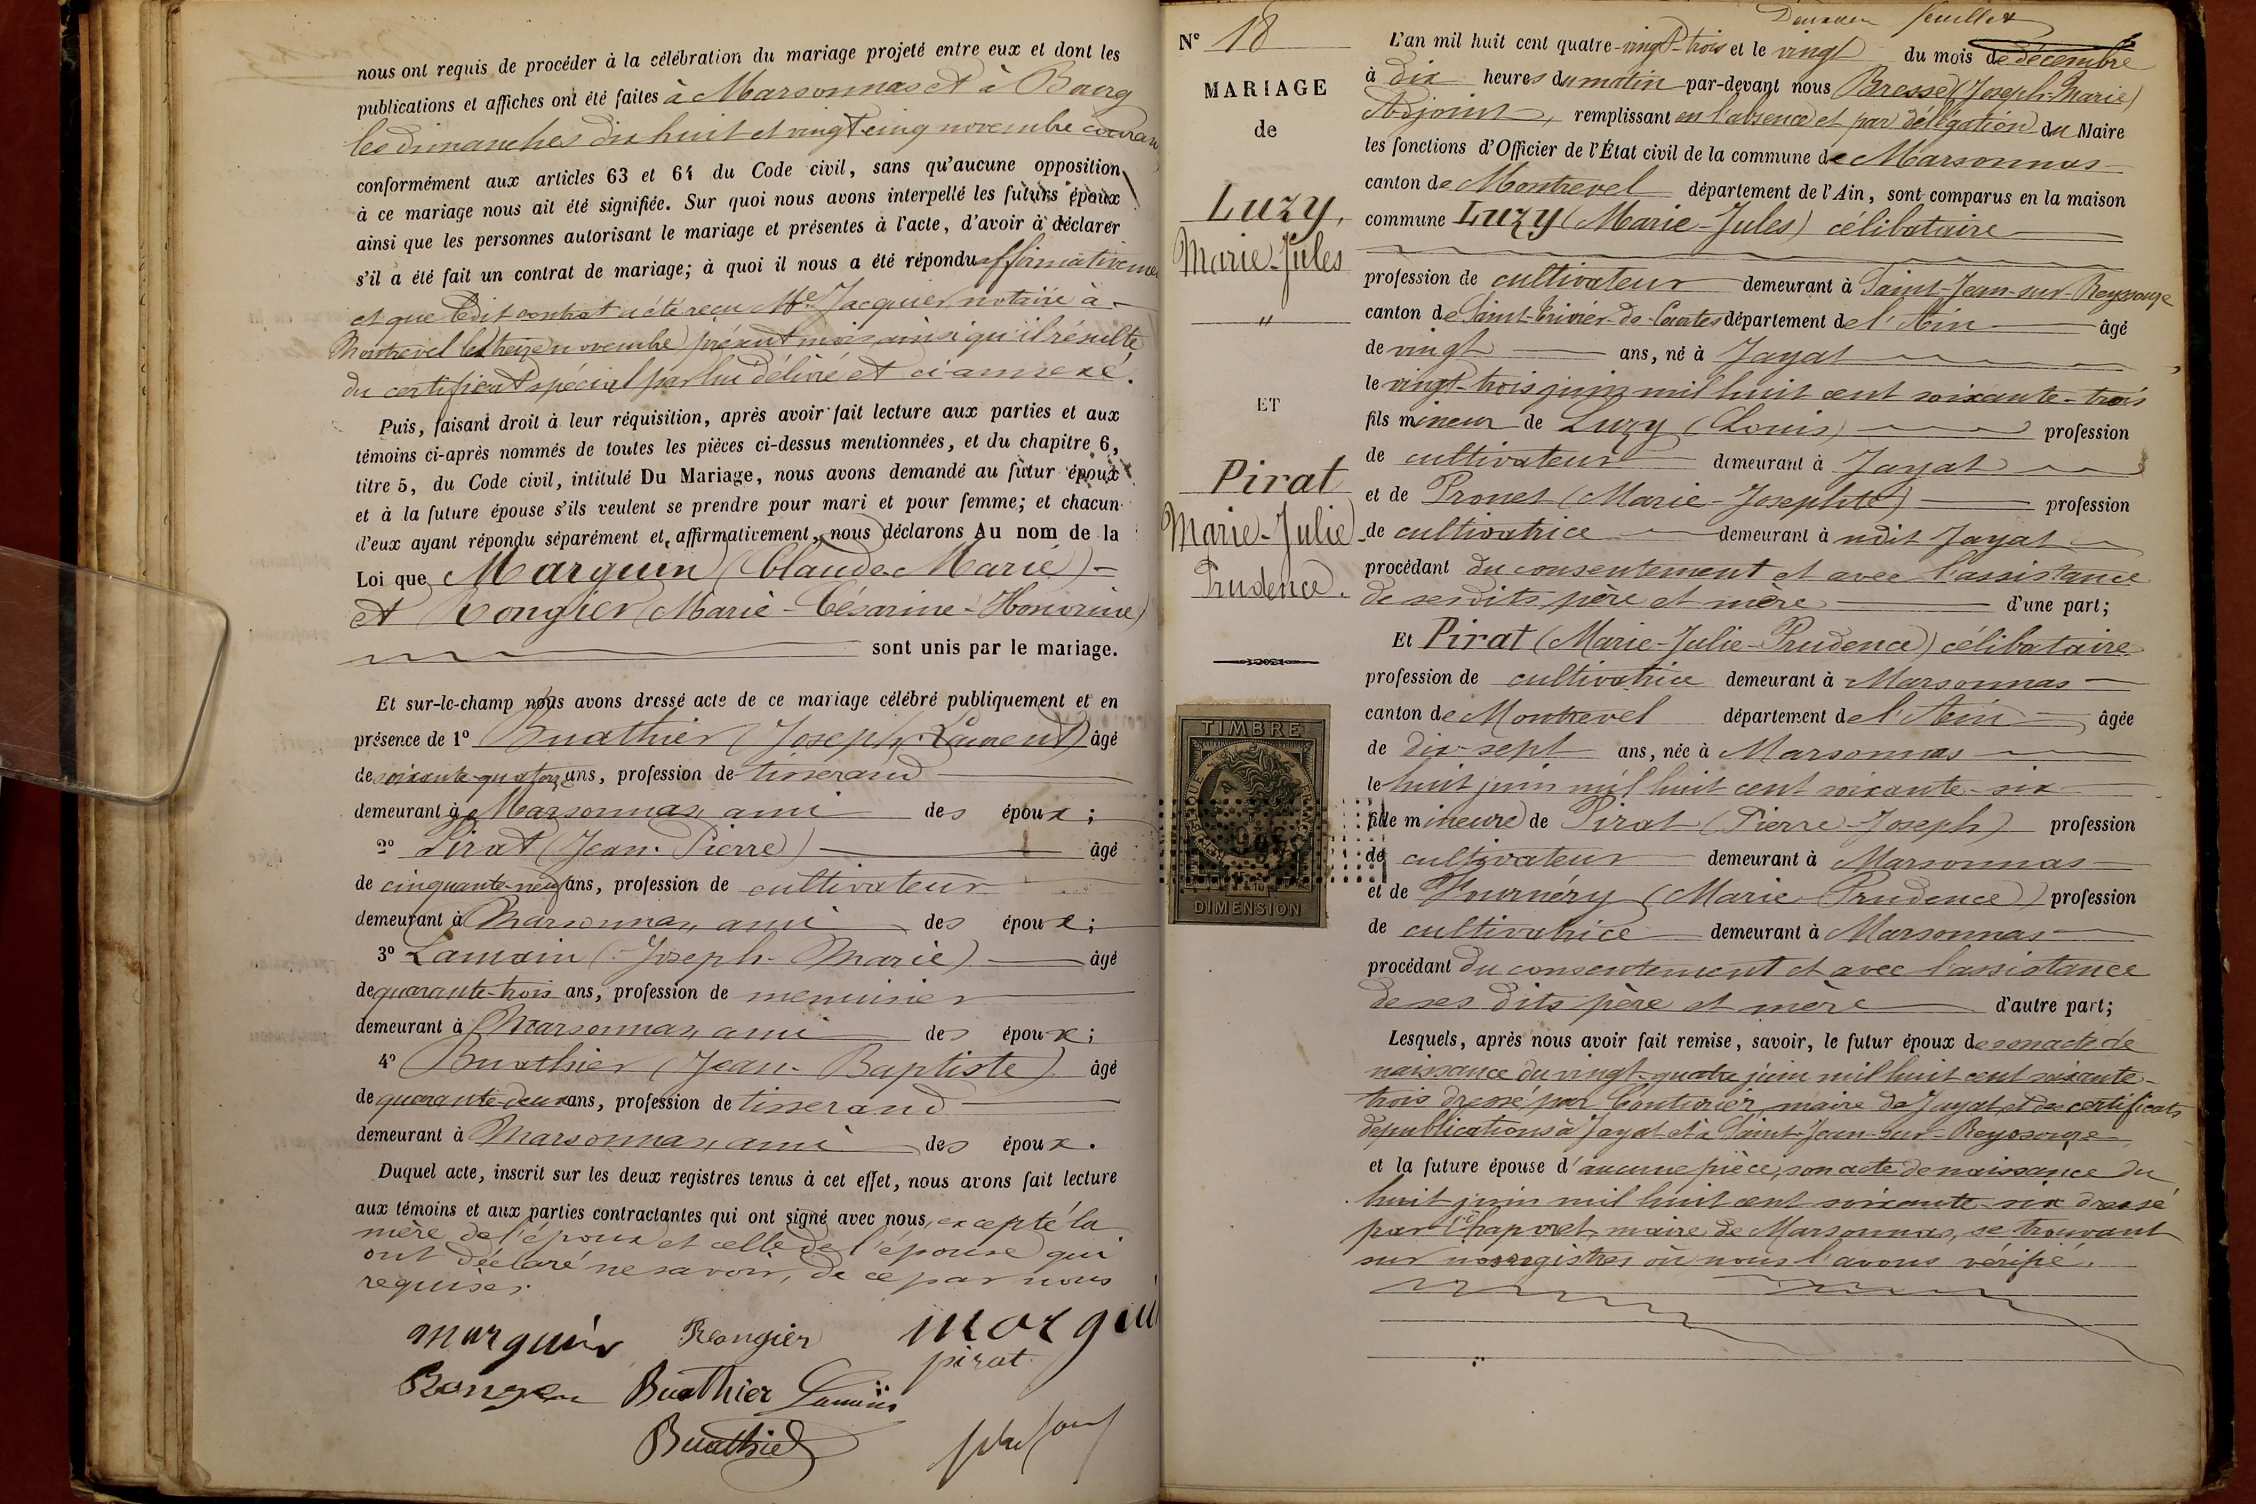 nous ont requis de procéder à la célébration du mariage projeté entre eux et dont les
publications et affiches ont été faites à Marsonnas et à Bourg
les dimanches dix huit et vingt-cinq novembre courant
conformément aux articles 63 et 64 du Code civil, sans qu'aucune opposition
à ce mariage nous ait été signifiée. Sur quoi nous avons interpellé les futurs époux
ainsi que les personnes autorisant le mariage et présentes à l'acte, d'avoir à déclarer
s'il a été fait un contrat de mariage; à quoi il nous a été répondu affirmativement
et que ledit contrat a été reçu Me Jacquier notaire à
Montrevel le treize novembre présent mois, ainsi qu'il résulte
du certificat spécial par lui délivré et ci-annexé.
Puis, faisant droit à leur réquisition, après avoir fait lecture aux parties et aux
témoins ci-après nommés de toutes les pièces ci-dessus mentionnées, et du chapitre 6,
titre 5, du Code civil, intitulé Du Mariage, nous avons demandé au futur époux
et à la future épouse s'ils veulent se prendre pour mari et pour femme; et chacun
d'eux ayant répondu séparément et affirmativement, nous déclarons Au nom de la
Loi que Marguin (Claude Marie)
et Rongier (Marie-Césarine-Honorine)
sont unis par le mariage.
Et sur-le-champ nous avons dressé acte de ce mariage célébré publiquement et en
présence de 1º Buathier (Joseph-Laurent) âgé
de soixante-quatorze ans, profession de tisserand
demeurant à Marsonnas, ami des époux;
2º Pirat (Jean-Pierre) âgé
de cinquante-neuf ans, profession de cultivateur
demeurant à Marsonnas, ami des époux;
3º Lamain (Joseph-Marie) âgé
de quarante-trois ans, profession de menuisier
demeurant à Marsonnas, ami des époux;
4º Buathier (Jean-Baptiste) âgé
de quarante-deux ans, profession de tisserand
demeurant à Marsonnas, ami des époux.
Duquel acte, inscrit sur les deux registres tenus à cet effet, nous avons fait lecture
aux témoins et aux parties contractantes qui ont signé avec nous, excepté la
mère de l'époux et celle de l'épouse qui
ont déclaré ne savoir, de ce par nous
requises.
Marguin Rongier Marguin
pirat
Rongier Buathier Lamain
Buathier
feuillet
Nº 18
MARIAGE
de
Luzy,
Marie-Jules
"
ET
Pirat
Marie-Julie
Prudence.
TIMBRE
RÉPUBLIQUE FRANÇAISE
DIMENSION
L'an mil huit cent quatre-vingt-trois et le vingt du mois de décembre
à dix heures du matin par-devant nous Bresse (Joseph-Marie)
Adjoint, remplissant en l'absence et par délégation du Maire
les fonctions d'Officier de l'État civil de la commune de Marsonnas
canton de Montrevel département de l'Ain, sont comparus en la maison
commune Luzy (Marie-Jules) célibataire
profession de cultivateur demeurant à Saint-Jean-sur-Reyssouze
canton de Saint-Trivier-de-Courtes département de l'Ain âgé
de vingt ans, né à Jayat
le vingt-trois juin mil huit cent soixante-trois
fils mineur de Luzy (Louis) profession
de cultivateur demeurant à Jayat
et de Pronet (Marie-Josephte) profession
de cultivatrice demeurant à udit Jayat
procédant du consentement et avec l'assistance
de sesdits père et mère d'une part;
Et Pirat (Marie-Julie-Prudence) célibataire
profession de cultivatrice demeurant à Marsonnas
canton de Montrevel département de l'Ain âgée
de dix-sept ans, née à Marsonnas
le huit juin mil huit cent soixante-six
fille mineure de Pirat (Pierre-Joseph) profession
de cultivateur demeurant à Marsonnas
et de Fournéry (Marie-Prudence) profession
de cultivatrice demeurant à Marsonnas
procédant du consentement et avec l'assistance
de ses dits père et mère d'autre part;
Lesquels, après nous avoir fait remise, savoir, le futur époux de son acte de
naissance du vingt-quatre juin mil huit cent soixante-
trois dressé par Couturier maire de Jayat, et des certificats
de publications à Jayat et à Saint-Jean-sur-Reyssouze
et la future épouse d'aucune pièce, son acte de naissance du
huit juin mil huit cent soixante-six dressé
par Chaponet, maire de Marsonnas, se trouvant
sur nos registres où nous l'avons vérifié.